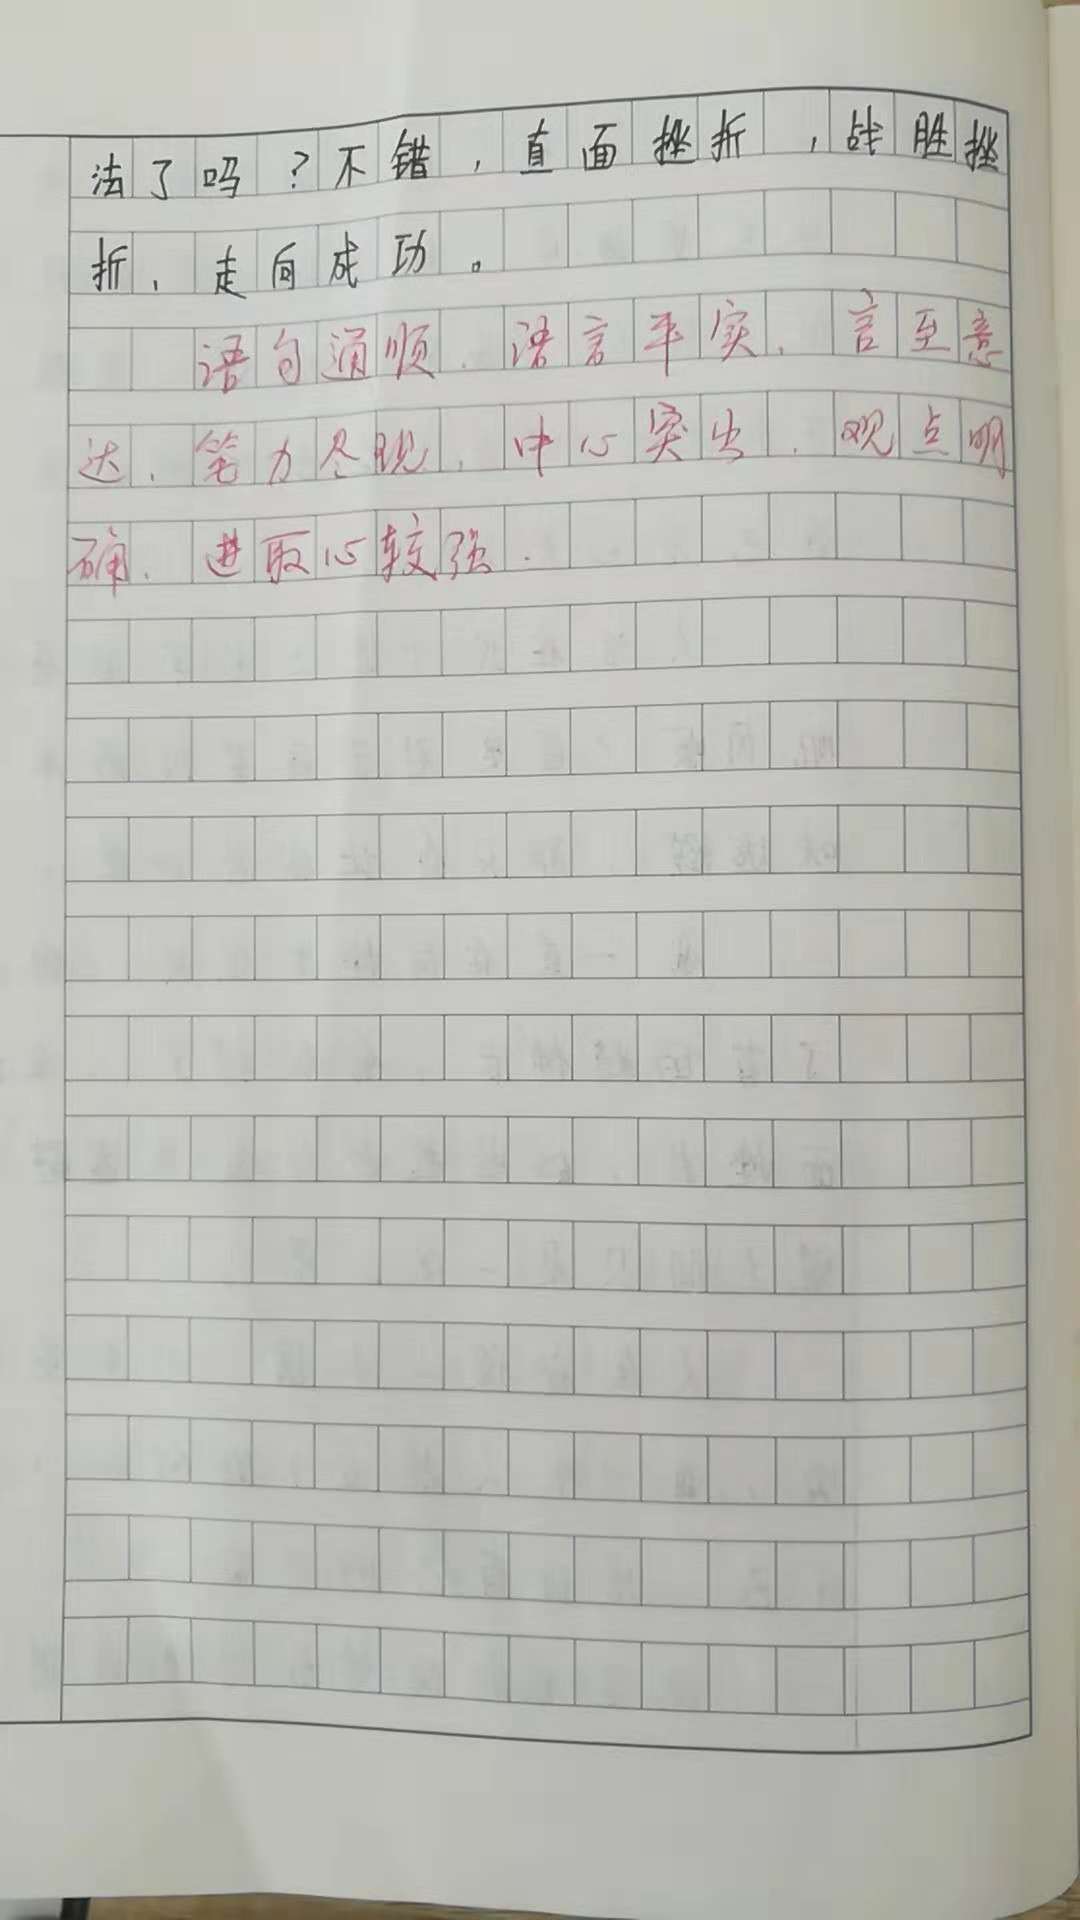 法了吗？不错，直面挫折，战胜挫
折，走向成功。
语句通顺．语言平实．言至意
达．笔力尽现．中心突出．观点明
确．进取心较强．